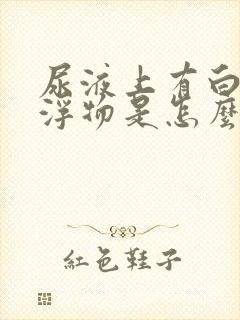 尿液上有白
浮物是怎麼
紅色鞋子